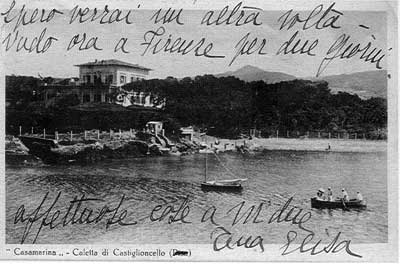 Spero verrai un altra volta -
vado ora a Firenze per due giorni
affettuose cose a vi due
tua Elisa
" Casamarina „ - Caletta di Castiglioncello (Pisa)